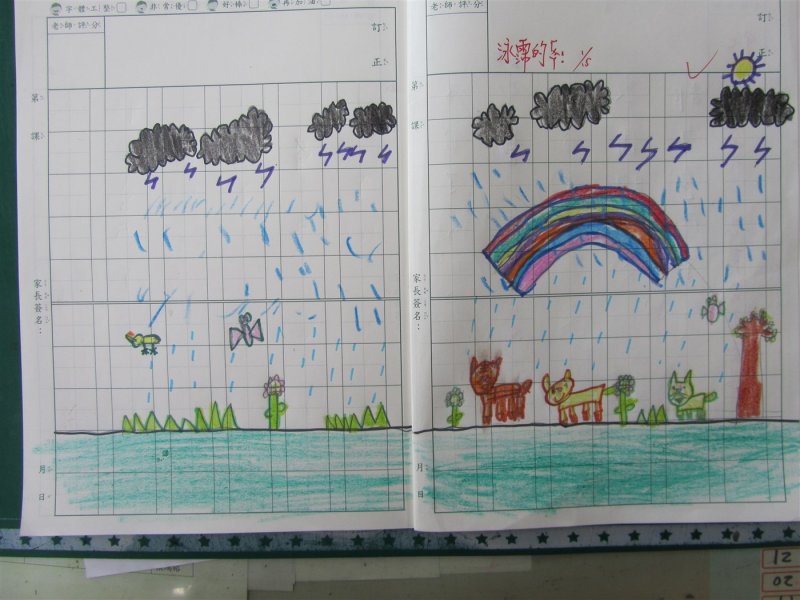 字體工整 非常優 好棒 再加油
老師評分
訂正
第 課
家長簽名：
月 日
老師評分
訂正
第 課
家長簽名：
月 日